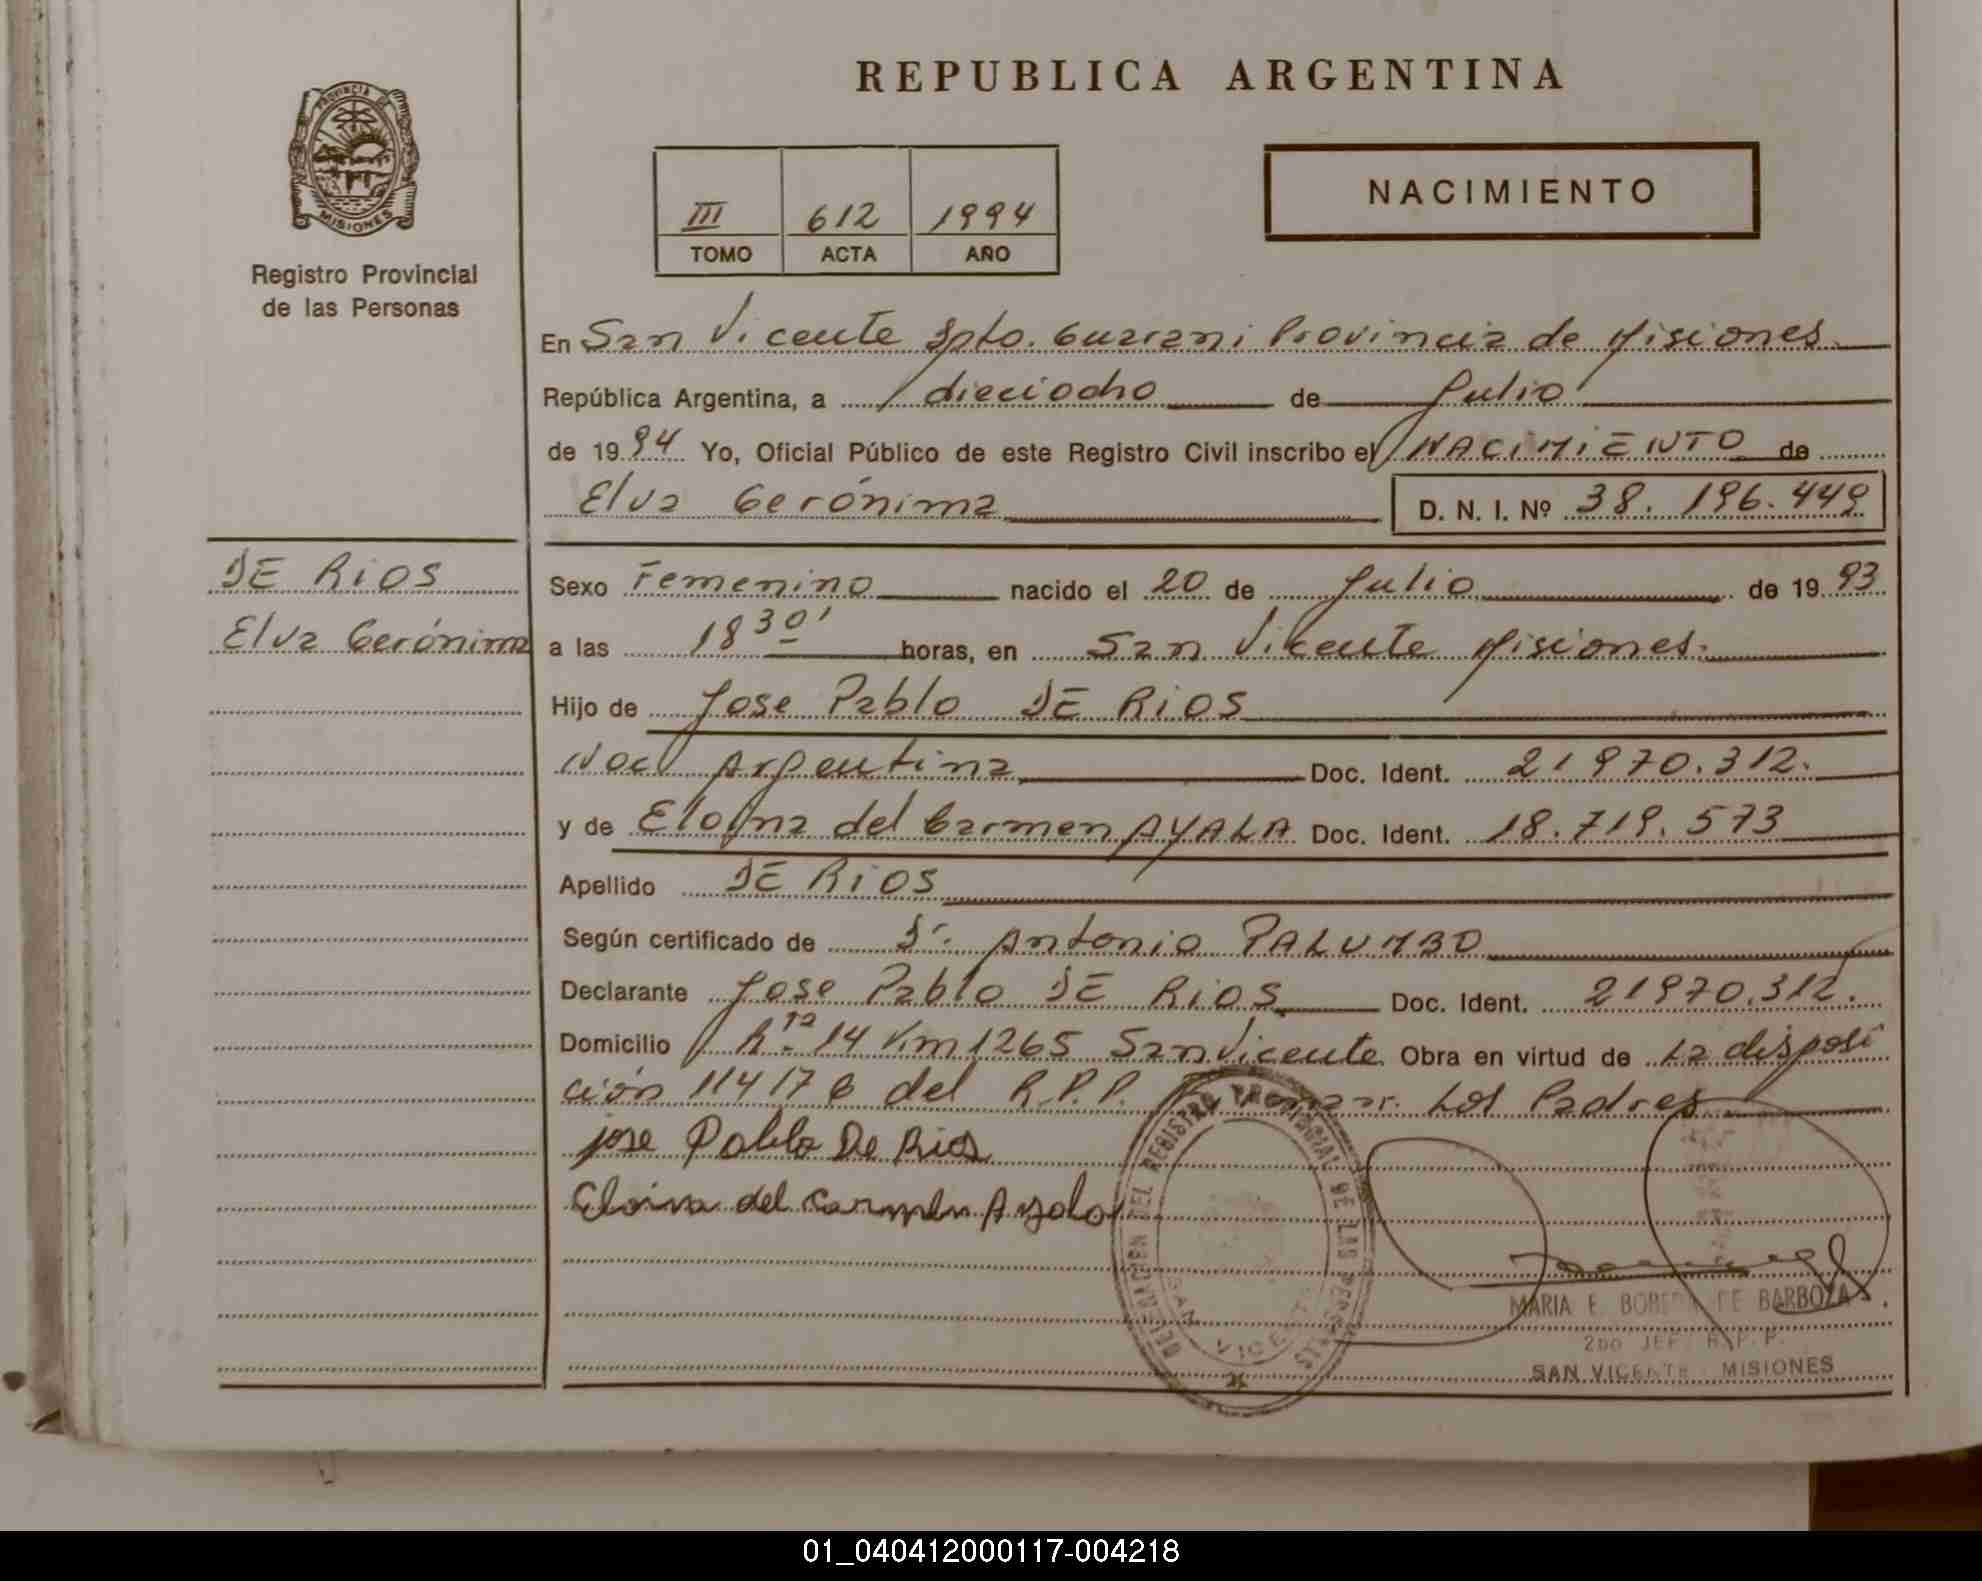 REPUBLICA ARGENTINA
PROVINCIA DE
MISIONES
Registro Provincial
de las Personas
III 612 1994
TOMO ACTA AÑO
NACIMIENTO
En San Vicente Dpto. Guarani Provincia de Misiones
República Argentina, a dieciocho de Julio
de 1994 Yo, Oficial Público de este Registro Civil inscribo el NACIMIENTO de
Elva Gerónima D. N. I. Nº 38.196.449
DE RIOS
Elva Gerónima
Sexo Femenino nacido el 20 de Julio de 1993
a las 18 30' horas, en San Vicente Misiones.
Hijo de Jose Pablo DE RIOS
Nac Argentina Doc. Ident. 21970.312.
y de Eloina del Carmen AYALA Doc. Ident. 18.719.573
Apellido DE RIOS
Según certificado de Dr. Antonio PALUMBO
Declarante Jose Pablo DE RIOS Doc. Ident. 21970.312.
Domicilio Rta. 14 Km 1265 San Vicente Obra en virtud de La disposi
ción 114176 del R.P.P. Los Padres
jose Pablo De Rios
Eloina del Carmen Ayala
DELEGACION DEL REGISTRO PROVINCIAL DE LAS PERSONAS
SAN VICENTE
MARIA E. DE BARBOZA
2DO JEF. R.P.P.
SAN VICENTE MISIONES
01_040412000117-004218